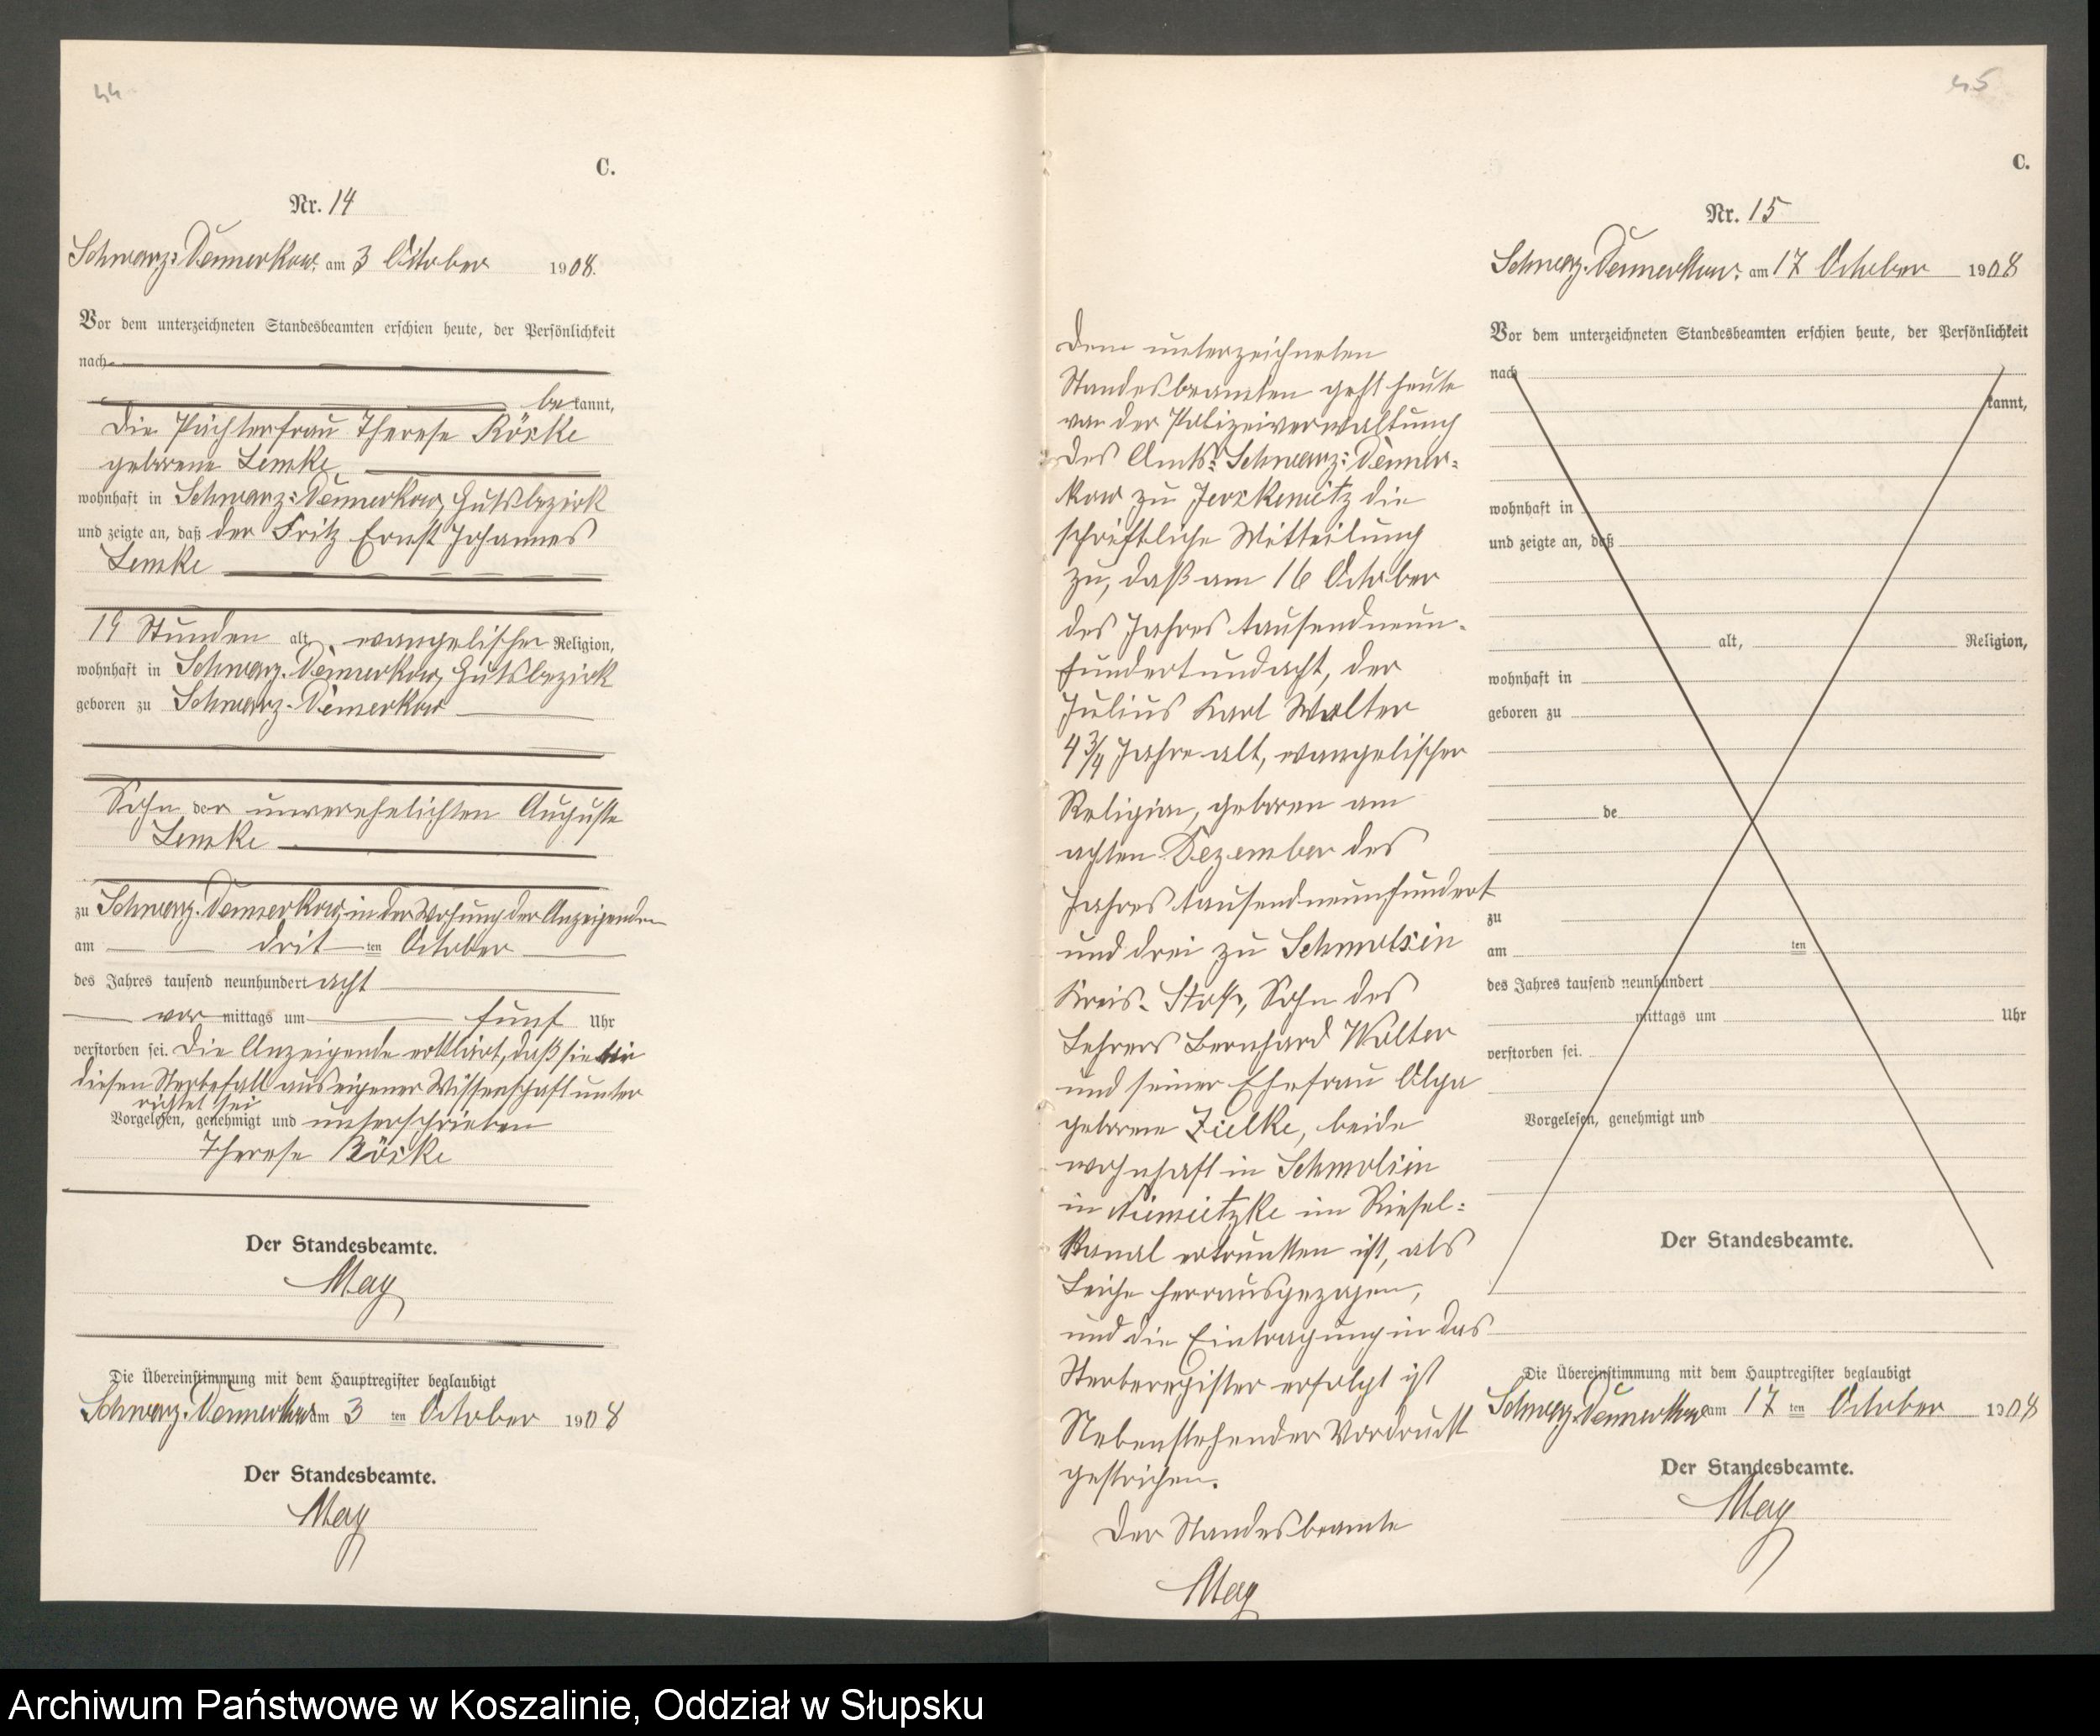 44
C.
Nr. 14
Schwarz-Dämerkow, am 3 October 1908.
Vor dem unterzeichneten Standesbeamten erschien heute, der Persönlichkeit
nach
be kannt,
die Pächterfrau Therese Röske
geborene Lemke,
wohnhaft in Schwarz-Dämerkow, Gutsbezirk
und zeigte an, daß der Fritz Ernst Johannes
Lemke
19 Stunden alt, evangelischer Religion,
wohnhaft in Schwarz-Dämerkow, Gutsbezirk
geboren zu Schwarz-Dämerkow
Sohn der unverehelichten Auguste
Lemke
zu Schwarz-Dämerkow, in der Wohung der Anzeigenden
am drit ten October
des Jahres tausend neunhundert acht
vor mittags um fünf Uhr
verstorben sei. Die Anzeigende erklärt, daß sie
diesen Sterbefall aus eigener Wissenschaft unter
richtet sei
Vorgelesen, genehmigt und unterschrieben
Therese Röske
Der Standesbeamte.
May
Die Übereinstimmung mit dem Hauptregister beglaubigt
Schwarz-Dämerkow am 3 ten October 1908
Der Standesbeamte.
May
45
C.
Nr. 15
Schwarz-Dämerkow, am 17 October 1908
Dem unterzeichneten
Standesbeamten geht heute
von der Polizeiverwaltung
des Amts: Schwarz-Dämer-
kow zu Jerskewitz die
schriftliche Mitteilung
zu, daß am 16 October
des Jahres tausendneun-
hundertundacht, der
Julius Karl Walter
4 3/4 Jahre alt, evangelischer
Religion, geboren am
achten Dezember des
Jahres tausendneunhundert
und drei zu Schmolsin
Kreis Stolp, Sohn des
Lehrers Bernhard Walter
und seiner Ehefrau Olga
geborene Zielke, beide
wohnhaft in Schmolsin
in Niemietzke im Riesel-
kanal ertrunken ist, als
Leiche herausgezogen,
und die Eintragung in das
Sterberegister erfolgt ist
Nebenstehender Vordruck
gestrichen.
Der Standesbeamte
May
Vor dem unterzeichneten Standesbeamten erschien heute, der Persönlichkeit
nach
kannt,
wohnhaft in
und zeigte an, daß
alt, Religion,
wohnhaft in
geboren zu
de
zu
am ten
des Jahres tausend neunhundert
mittags um Uhr
verstorben sei.
Vorgelesen, genehmigt und
Der Standesbeamte.
Die Übereinstimmung mit dem Hauptregister beglaubigt
Schwarz-Dämerkow am 17 ten October 1908
Der Standesbeamte.
May
Archiwum Państwowe w Koszalinie, Oddział w Słupsku